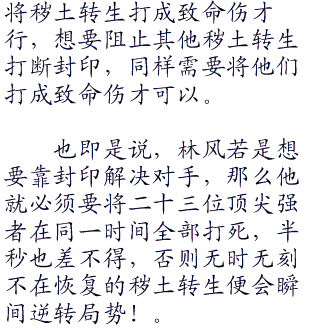 将秽土转生打成致命伤才
行，想要阻止其他秽土转生
打断封印，同样需要将他们
打成致命伤才可以。
也即是说，林风若是想
要靠封印解决对手，那么他
就必须要将二十三位顶尖强
者在同一时间全部打死，半
秒也差不得，否则无时无刻
不在恢复的秽土转生便会瞬
间逆转局势！。